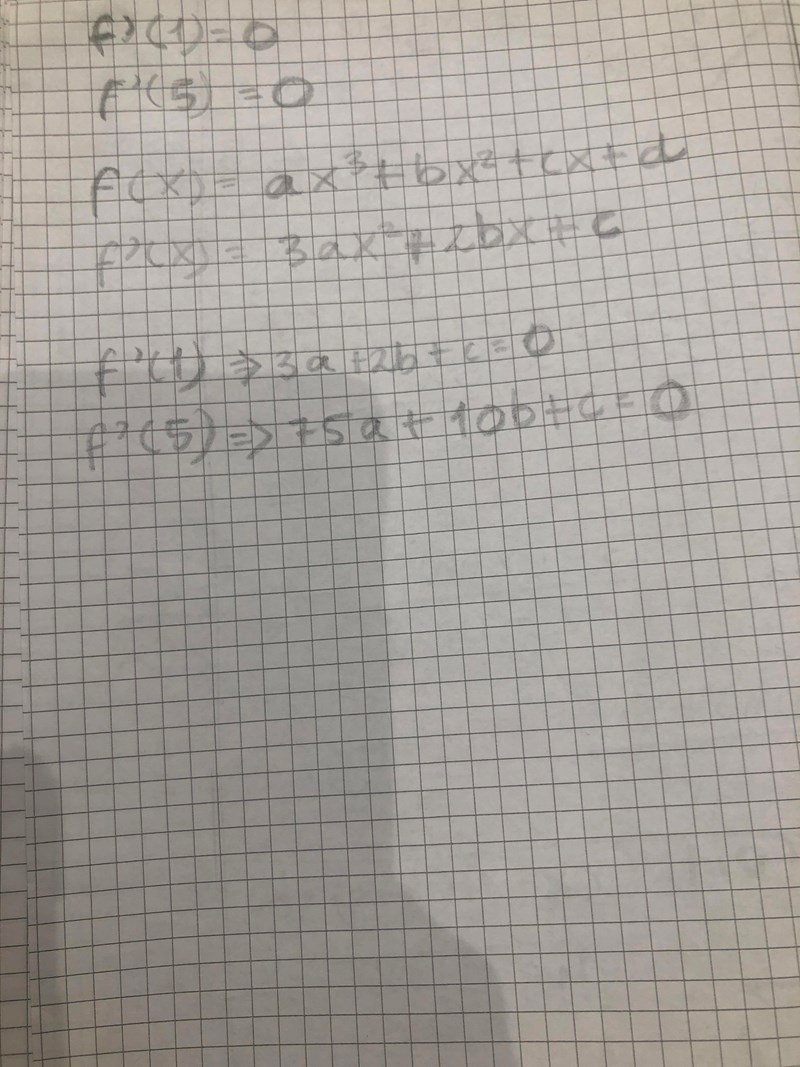 f'(1)=0
f'(5)=0
f(x)=ax³+bx²+cx+d
f'(x)=3ax²+2bx+c
f'(1)⇒3a+2b+c=0
f'(5)⇒75a+10b+c=0